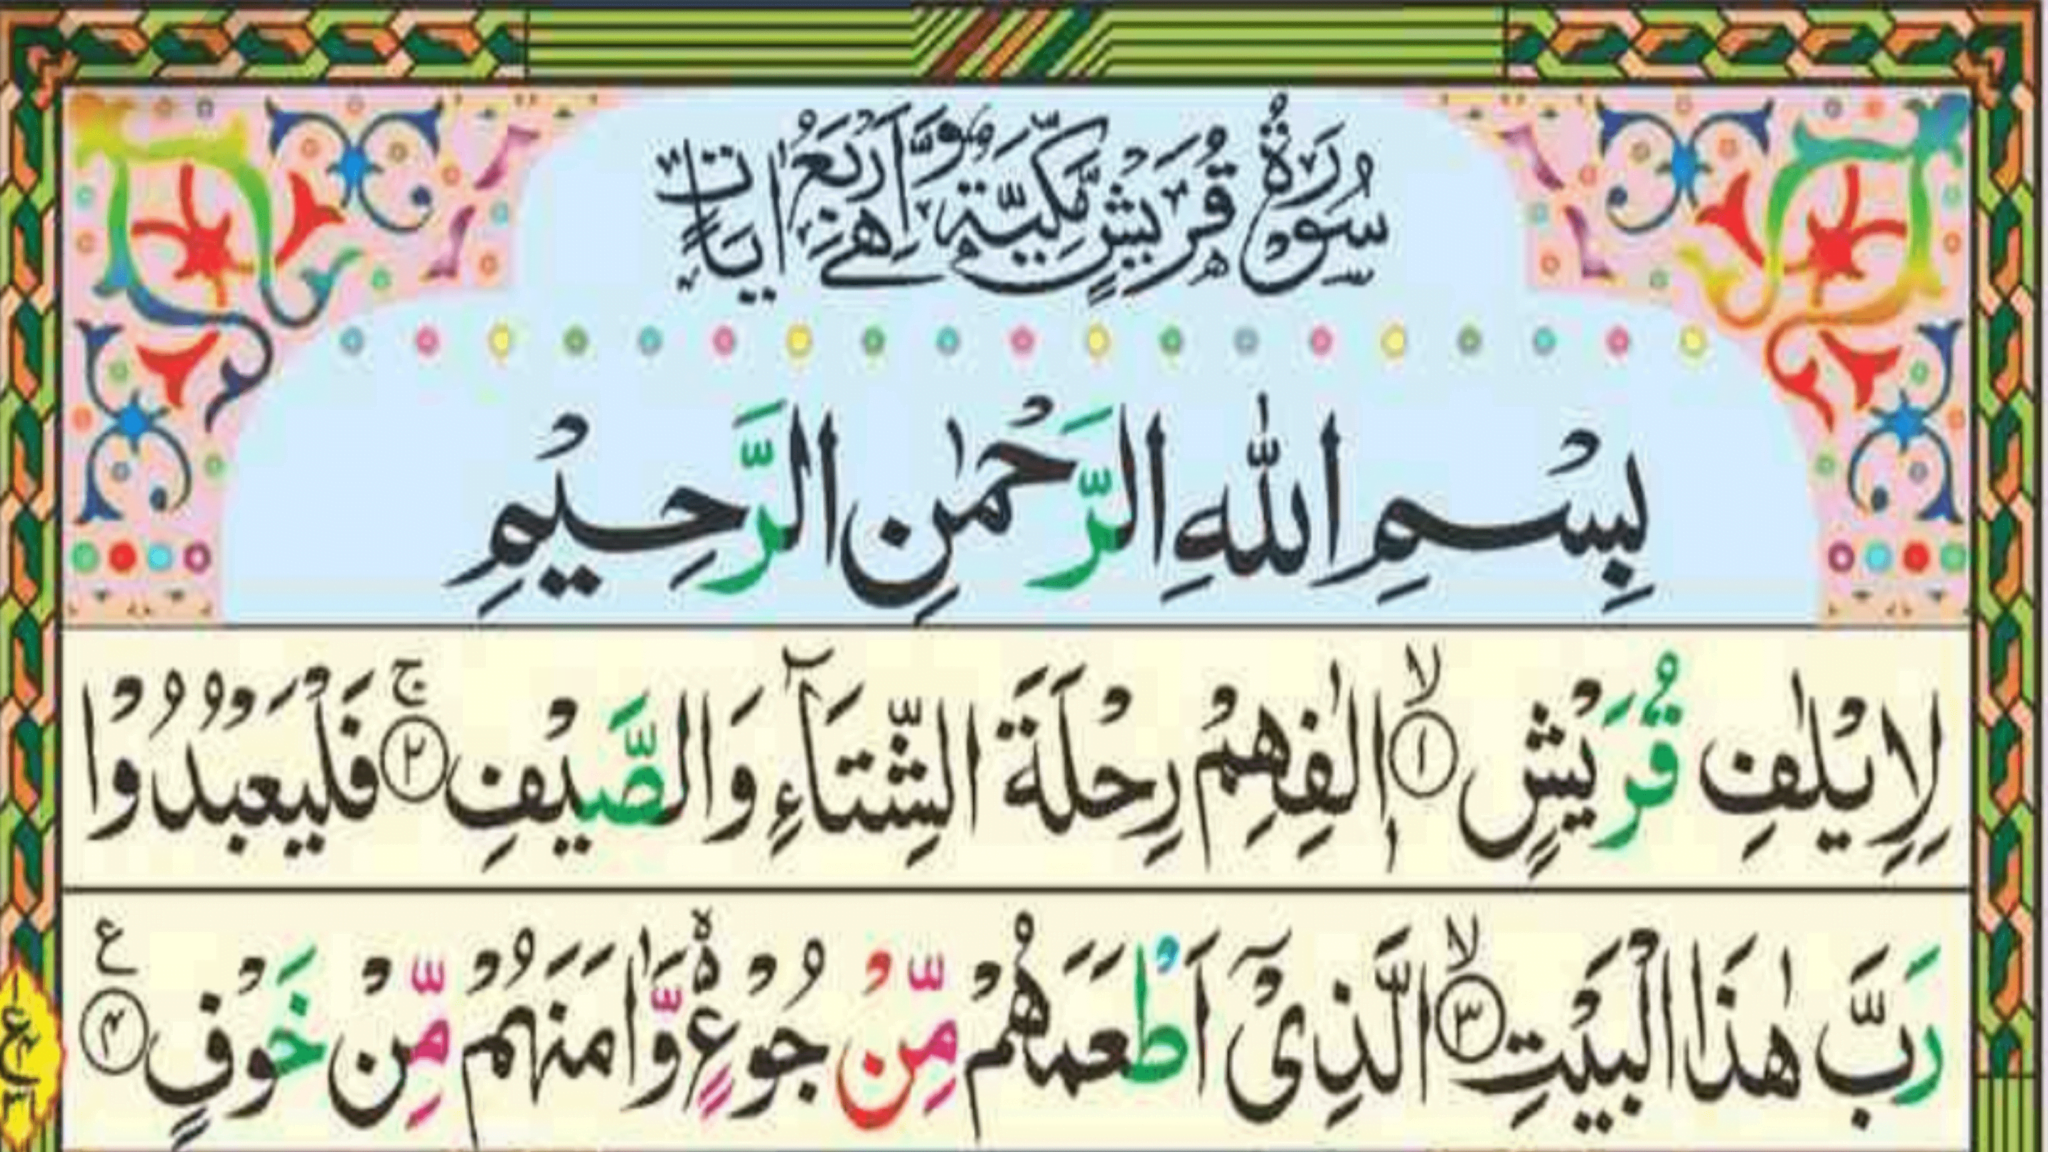 سُوْرَةُ قُرَيْشٍ مَّكِّيَّةٌ وَّهِيَ اَرْبَعُ اٰيَاتٍ
بِسْمِ اللّٰهِ الرَّحْمٰنِ الرَّحِيْمِ
لِاِيْلٰفِ قُرَيْشٍ ۙ﴿۱﴾ اٖلٰفِهِمْ رِحْلَةَ الشِّتَآءِ وَالصَّيْفِ ۚ﴿۲﴾ فَلْيَعْبُدُوْا
رَبَّ هٰذَا الْبَيْتِ ۙ﴿۳﴾ الَّذِیْۤ اَطْعَمَهُمْ مِّنْ جُوْعٍ ۙ۬ وَّاٰمَنَهُمْ مِّنْ خَوْفٍ ﴿۴﴾ ع